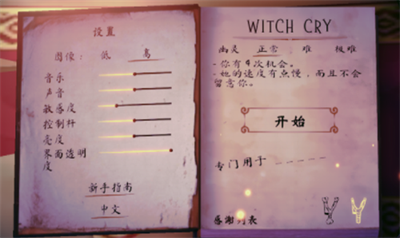 设置
图像: 低 高
音乐
声音
敏感度
控制杆
亮度
界面透明
度
新手指南
中文
WITCH CRY
幽灵 正常 难 极难
-你有4次机会。
-她的速度有点慢，而且不会
留意你。
开始
专门用于 -----
感谢列表